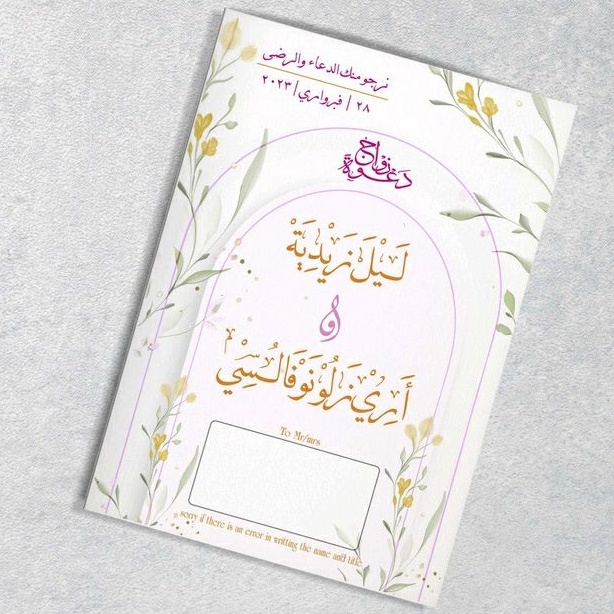 نرجو منك الدعاء والرضى
٢٨ | فبرواري | ٢٠٢٣
دعوة زواج
لَيْلَ زَيْدِيَةْ
و
أَرِيْ زَلُوْنَوْفَالُسِّيْ
To Mr/mrs
sorry if there is an error in writting the name and title